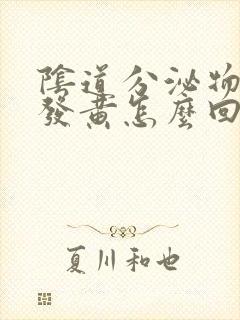 陰道分泌物
發黃怎麼回
夏川和也